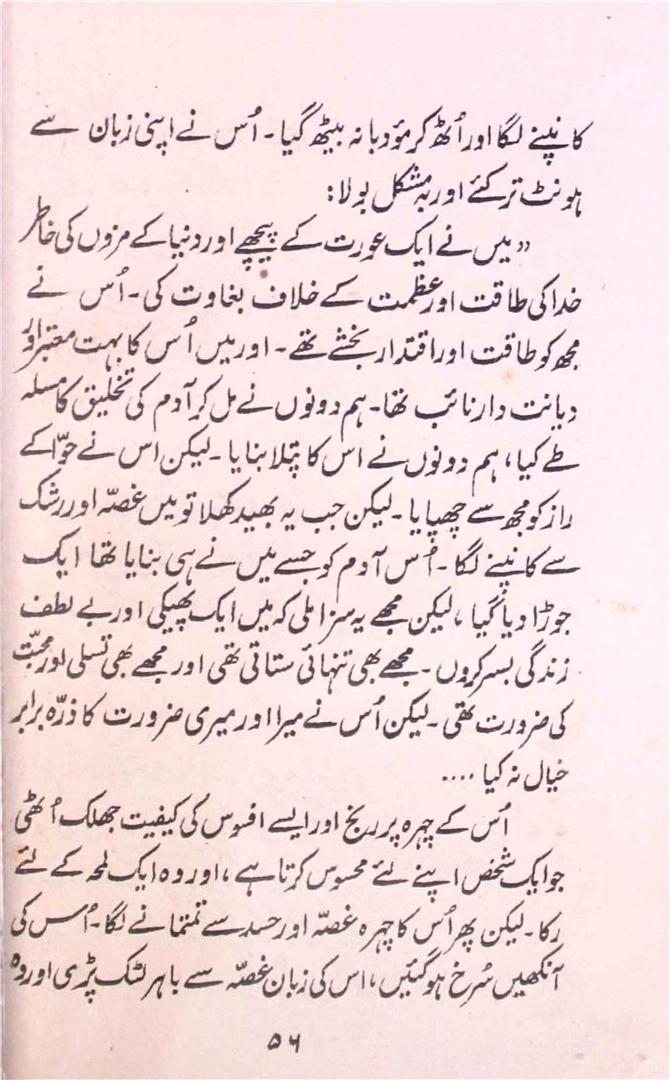 کانپنے لگا اور اُٹھ کر مؤدبانہ بیٹھ گیا۔ اُس نے اپنی زبان سے
ہونٹ تر کئے اور بہ مشکل بولا:
”میں نے ایک عورت کے پیچھے اور دنیا کے مزوں کی خاطر
خدا کی طاقت اور عظمت کے خلاف بغاوت کی۔ اُس نے
مجھ کو طاقت اور اقتدار بخشے تھے۔ اور میں اُس کا بہت معتبر اور
دیانت دار نائب تھا۔ ہم دونوں نے مل کر آدم کی تخلیق کا مسلہ
طے کیا، ہم دونوں نے اس کا پتلا بنایا۔ لیکن اس نے حوّا کے
راز کو مجھ سے چھپایا۔ لیکن جب یہ بھید کھلا تو میں غصّہ اور رشک
سے کانپنے لگا۔ اُس آدم کو جسے میں نے ہی بنایا تھا ایک
جوڑا دیا گیا، لیکن مجھے یہ سزا ملی کہ میں ایک پھیکی اور بے لطف
زندگی بسر کروں۔ مجھے بھی تنہائی ستاتی تھی اور مجھے بھی تسلی اور محبّت
کی ضرورت تھی۔ لیکن اُس نے میرا اور میری ضرورت کا ذرّہ برابر
خیال نہ کیا ....
اُس کے چہرہ پر رنج اور ایسے افسوس کی کیفیت جھلک اُٹھی
جو ایک شخص اپنے لئے محسوس کرتا ہے، اور وہ ایک لمحہ کے لئے
رکا۔ لیکن پھر اُس کا چہرہ غصّہ اور حسد سے تمتمانے لگا۔ اُس کی
آنکھیں سُرخ ہو گئیں، اس کی زبان غصّہ سے باہر لٹک پڑی اور وہ
۵۶